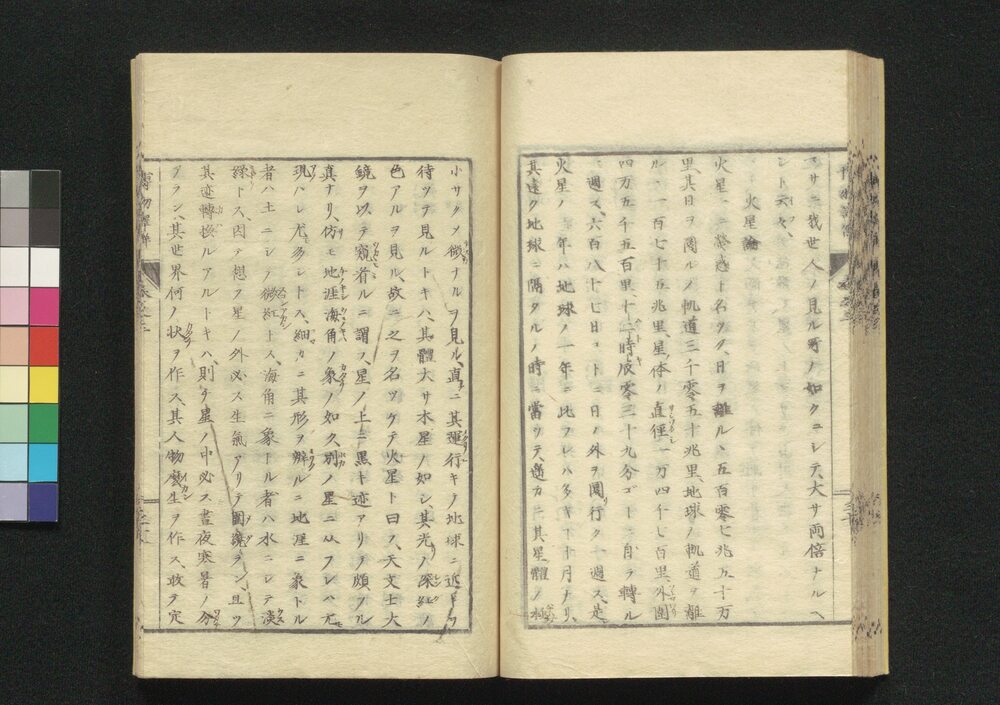 マサニ我世人ノ見ル所ノ如クニシテ、大サ両倍ナルヘ
シト云々、
火星論
火星、一ニ熒惑ト名ツク、日ヲ離ル、五百零七兆五十万
里、其日ヲ圜ルノ軌道三千零五十兆里、地球ノ軌道ヲ離
ル、一百七十五兆里、星体ノ直徑一万四千七百里、外圍
四万五千五百里、十二時辰零三十九分ゴトニ自ラ轉ル
一週ス、六百八十七日ゴトニ日ノ外ヲ圜行ク一週ス、是
火星ノ一年ハ地球ノ一年ニ比フレハ多キ十月ナリ、
其遠ク地球ニ隔タルノ時ニ當ツテ、適カニ其星體ノ極
小サク微ナルヲ見ル、直ニ其運行キノ地球ニ近ヨルヲ
待ツテ見ルトキハ、其體大サ木星ノ如シ、其光ノ深紅ノ
色アルヲ見ル、故ニ之ヲ名ツケテ火星ト曰フ、天文士大
鏡ヲ以テ窺着ルニ謂フ、星ノ上ニ黒キ迹アリテ頗フル
真ナリ、仿モ地涯海角ノ象ノ如ク、別ノ星ニ从フレハ尤
現ハレ尤多シトス、細カニ其形ヲ辨ルニ地涯ニ象トル
者ハ土ニシテ微紅トス、海角ニ象トル者ハ水ニシテ淡
緑トス、因テ想フ星ノ外必ス生氣アリテ圍繞ラン、且ツ
其迹轉換ルアルトキハ、則チ星ノ中必ス晝夜寒暑ノ分
アラン、其世界何ノ状ヲ作ス、其人物麼生ヲ作ス、敢テ定
博物解